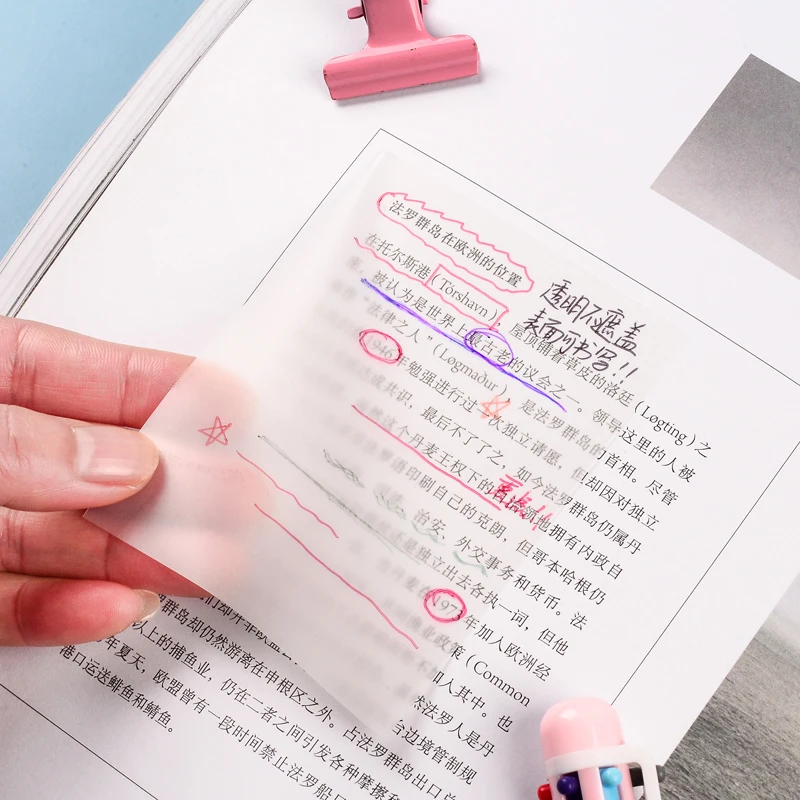 法罗群岛在欧洲的位置
透明不遮盖
表面可书写!!
在托尔斯港(Tórshavn),屋顶铺着草皮的洛廷(Løgting)之
被认为是世界上最古老的议会之一。领导这里的人被
“法律之人”(Løgmaður),是法罗群岛的首相。尽管
1946年勉强进行过一次独立请愿,但却因对独立
共识,最后不了了之,如今法罗群岛仍属丹
这个丹麦王权下的 领地拥有内政自
印刷自己的克朗,但哥本哈根仍
治安、外交事务和货币。法
是独立出去各执一词,但他
1973年加入欧洲经
政策(Common
人其中。也
法罗人是丹
边境管制规
群岛却仍然游离在申根区之外。占法罗群岛出口总
以上的捕鱼业,仍在二者之间引发各种摩擦
年夏天,欧盟曾有一段时间禁止法罗船
港口运送鲱鱼和鲭鱼。